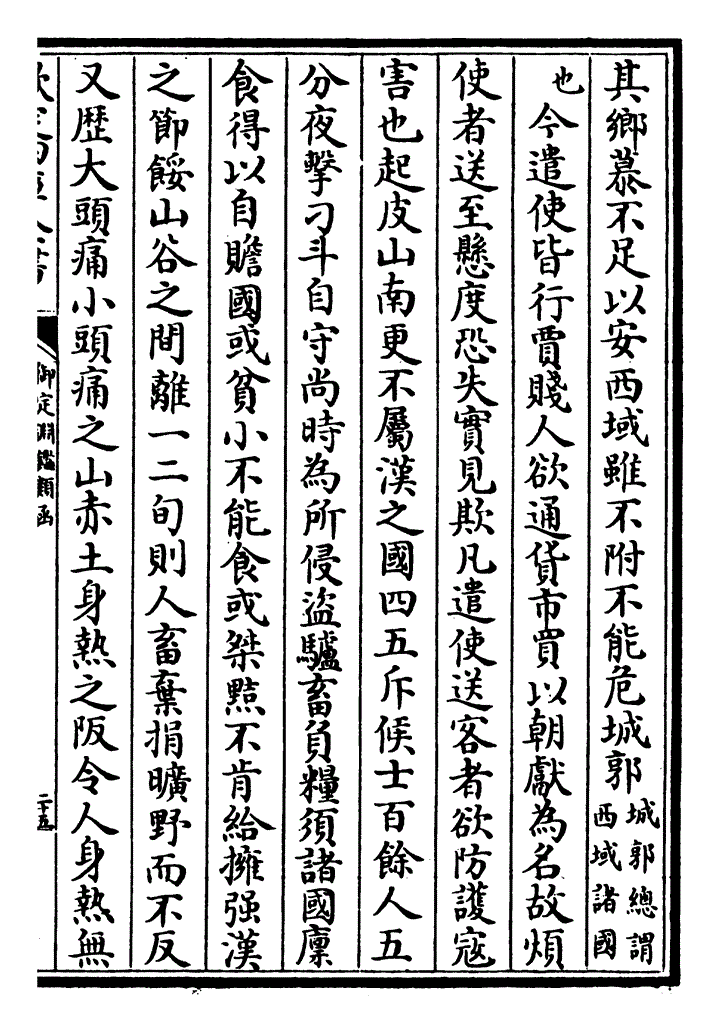 其鄉慕不足以安西域雖不附不能危城郭城郭總謂西域諸國
也今遣使皆行賈賤人欲通貨市買以朝獻為名故煩
使者送至懸度恐失實見欺凡遣使送客者欲防護寇
害也起皮山南更不屬漢之國四五斥候士百餘人五
分夜擊刁斗自守尚時為所侵盜驢畜負糧須諸國廩
食得以自贍國或貧小不能食或桀黠不肯給擁强漢
之節餒山谷之間離一二旬則人畜棄捐曠野而不反
又歷大頭痛小頭痛之山赤土身熱之阪令人身熱無
御定淵鑑類函
二十五